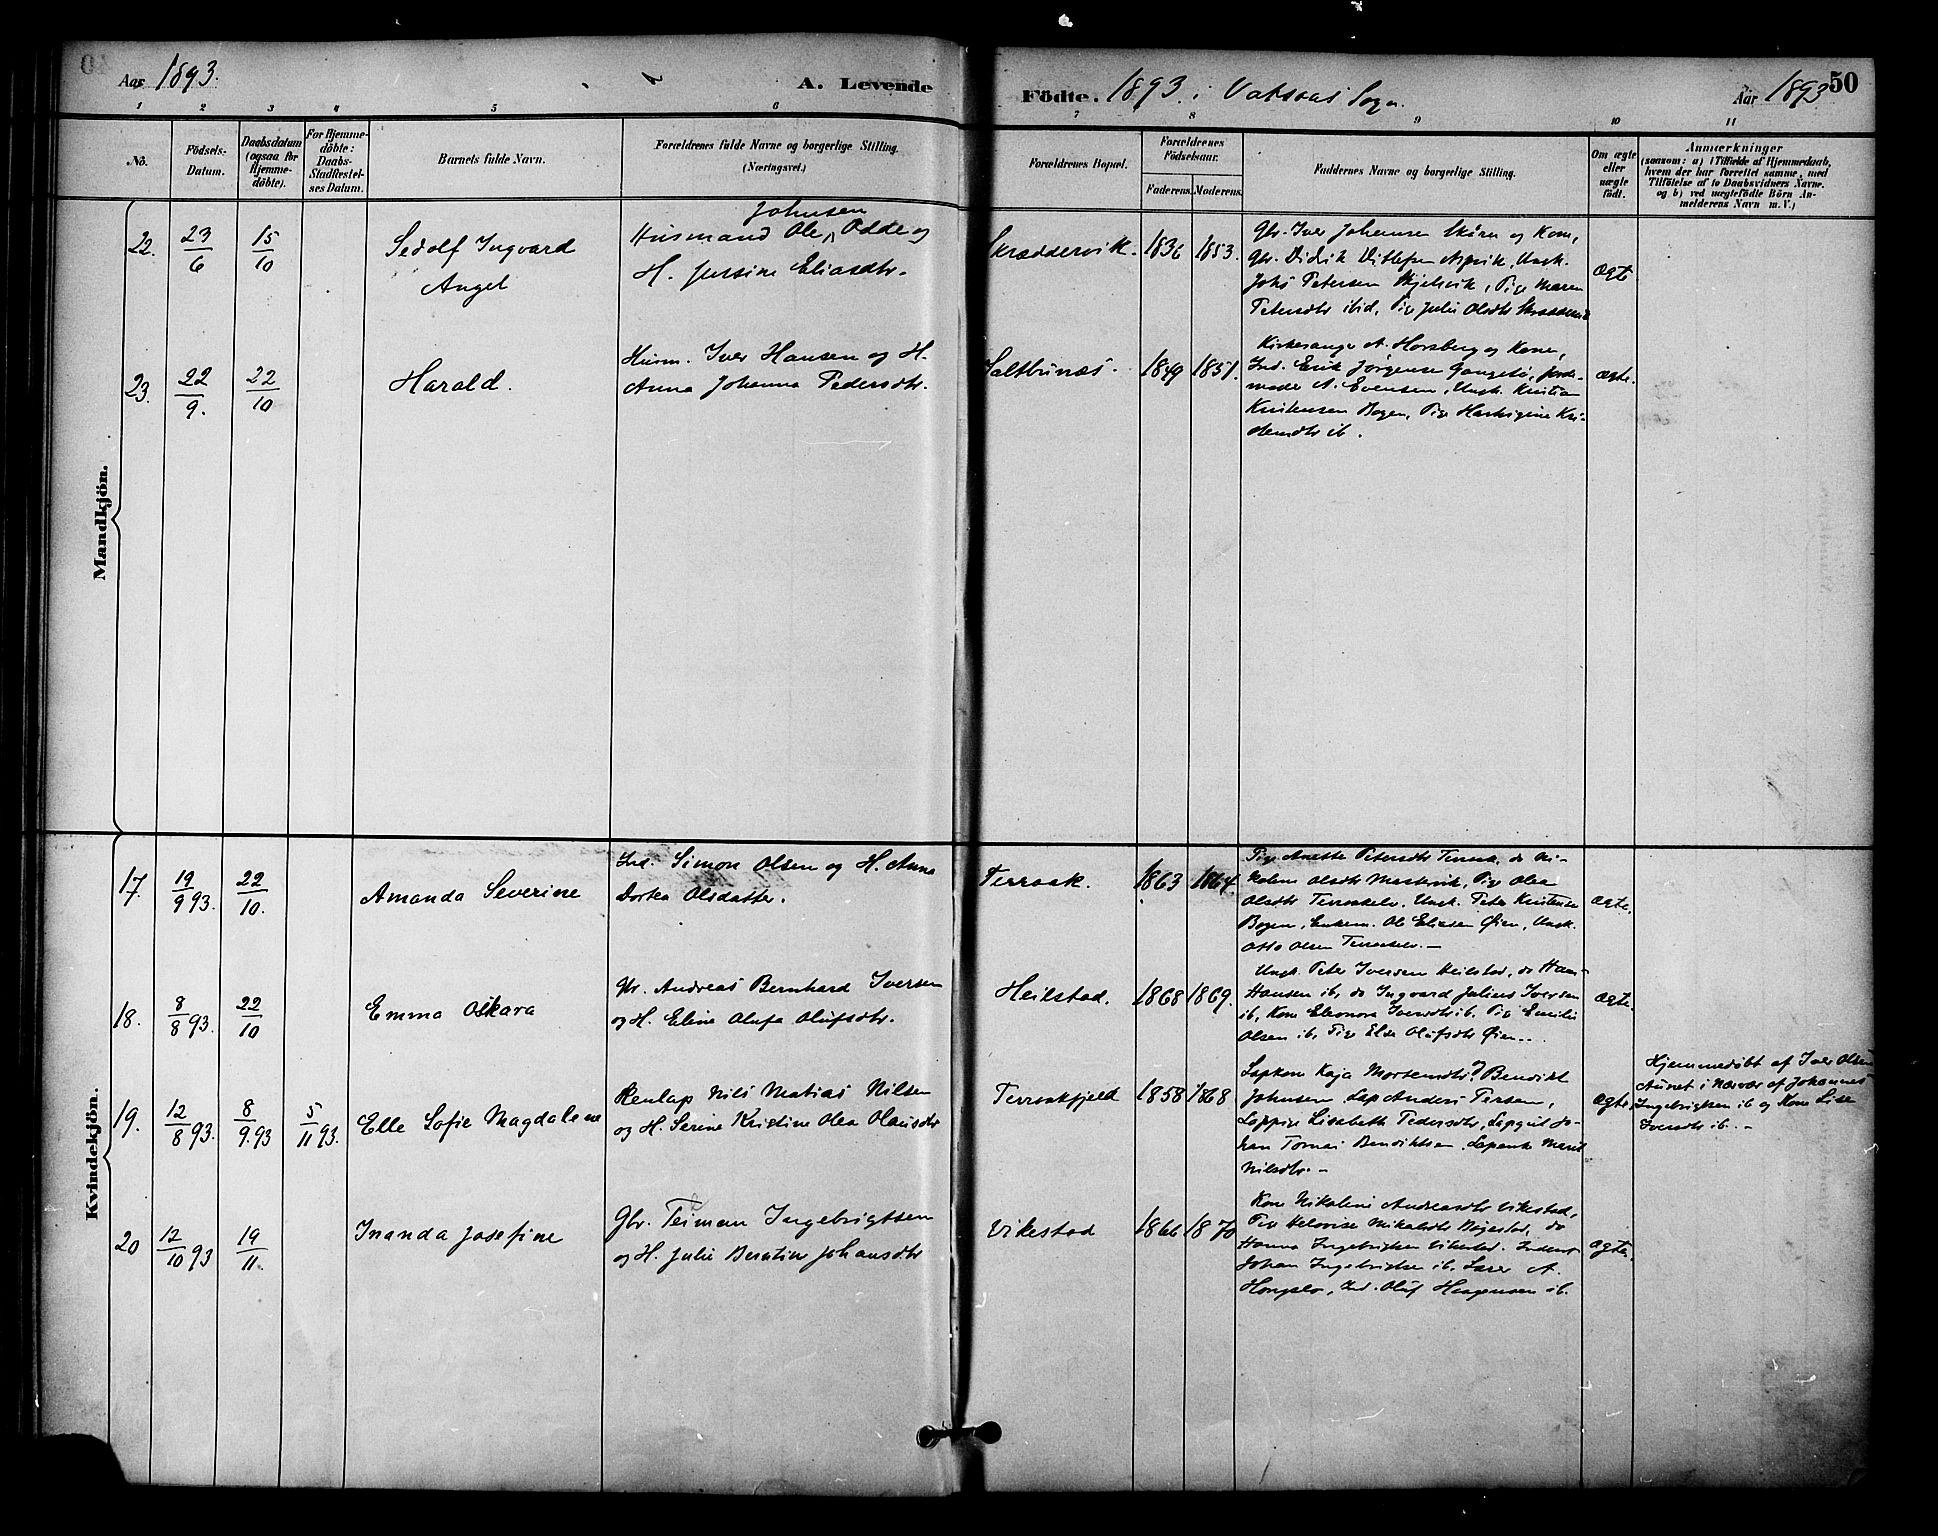 Aar 1893.
A. Levende
Födte. 1893. i Vatsaas Sogn.
Aar 1893
50
1 2 3 4 5 6 7 8 9 10 11
No.
Födsels-
Datum.
Daabsdatum
(ogsaa for
Hjemme-
döbte).
For Hjemme-
döbte:
Daabs-
Stadfæstel-
ses Datum.
Barnets fulde Navn.
Forældrenes fulde Navne og borgerlige Stilling.
(Næringsvei.)
Forældrenes Bopæl.
Forældrenes
Födselsaar.
Faderens. Moderens.
Faddernes Navne og borgerlige Stilling.
Om ægte
eller
uægte
født.
Anmærkninger
(saasom: a) i Tilfælde af Hjemmedaab,
hvem der har forrettet samme, med
Tilföielse af to Daabsvidners Navne.
og b) ved uægtefödte Börn An-
melderens Navn m. V.)
Mandkjön.
22.
23/6
15/10
Sedolf Ingvard
Angel
Johnsen
Husmand Ole, Odde og
H. Jessine Eliasdtr.
Skræddervik.
1836
1853.
Gbr. Iver Johansen og Kone,
Gbr. Didrik Ditlefsen Ungk.
Johs Petersen Pige Maren
Petersdtr ibid, Pige Julie Olsdtr
Ægte
23.
22/9.
22/10
Harald.
Husm. Iver Hansen og H.
Anna Johanna Pedersdtr.
Saltbunæs.
1849
1857.
Kirkesanger A. Horsberg og Kone,
Ind. Erik Jørgense Gangsø, Jorde-
moder A. Evensen, Ungk. Kristian
Kristensen Bogen, Pige Hartvigine Kri-
stensdtr ib.
ægte.
Kvindekjön.
17.
19/9 93.
22/10.
Amanda Severine
Ind. Simon Olsen og H. Anna
Dortea Olsdatter.
Terraak.
1863
1864.
Pige Anette Petersdtr Terraak, do Ni-
koline Olsdtr Pige Olea
Olsdtr Terraakelv, Ungk. Peter Kristensen
Bogen, Enkem. Ole Eliasen Øien, Ungk.
Otto Olsen Terraakelv. —
ægte.
18.
8/8 93.
22/10
Emma Oskara
Gbr. Andreas Bernhard Iversen
og H. Eline Olufa Olufsdtr.
Heilstad.
1868
1869.
Ungk. Peter Iversen Heilstad, do Hans
Hansen ib, do Ingvard Julius Iversen
ib, Kone Eleonora Iversdtr ib. Pige Emilie
Olsen ib, Pige Elda Olufsdtr Øien..
ægte.
19.
12/8 93.
8/9.93
5/11 93.
Elle Sofie Magdalene
Renlap Nils Matias Nilsen
og H. Serine Kristine Olea Olausdtr
Terraakfjeld
1858
1868
Lapkone Kaja Mortensdtr, Bendikt
Johnsen Lap Anders Tersen,
Lappige Lisabeth Pedersdtr, Lapgut Jo-
han Tomas Bendiktsen, Lapenke Marit
Nilsdtr. —
ægte
Hjemmedøbt af Iver Olsen
Aunet i Nærvær af Johannes
Ingebrigtsen ib og Kone Lise
Iversdtr ib. —
20
12/10 93
19/11.
Inanda Josefine
Gbr. Teiman Ingebrigtsen
og H. Julie Berntine Johansdtr
Vikestad
1866
1870
Kone Nikoline Andreasdtr Vikestad,
Pige Helovise Mikalsdtr do
Hanna Ingebrigtsen Vikestad. Inderst
Johan Ingebrigtsen ib. Lærer A.
Hongslo, Ind. Oluf Haagensen ib.
ægte.